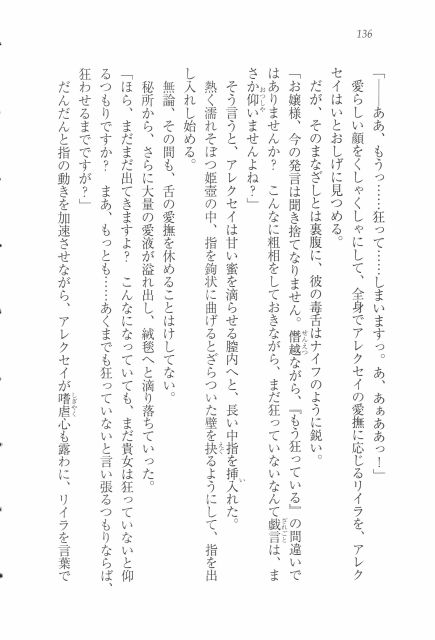 136
「――ああ、もうっ……狂って……しまいますっ。あ、あぁああっ！」
愛らしい顔をくしゃくしゃにして、全身でアレクセイの愛撫に応じるリイラを、アレク
セイはいとおしげに見つめる。
だが、そのまなざしとは裏腹に、彼の毒舌はナイフのように鋭い。
「お嬢様、今の発言は聞き捨てなりません。僭越ながら、『もう狂っている』の間違いで
はありませんか？　こんなに粗相をしておきながら、まだ狂っていないなんて戯言は、ま
さか仰いませんよね？」
そう言うと、アレクセイは甘い蜜を滴らせる膣内へと、長い中指を挿入れた。
熱く濡れそぼつ姫壺の中、指を鉤状に曲げるとざらついた壁を抉るようにして、指を出
し入れし始める。
無論、その間も、舌の愛撫を休めることはけしてない。
秘所から、さらに大量の愛液が溢れ出し、絨毯へと滴り落ちていった。
「ほら、まだまだ出てきますよ？　こんなになっていても、まだ貴女は狂っていないと仰
るつもりですか？　まあ、もっとも……あくまでも狂っていないと言い張るつもりならば、
狂わせるまでですが？」
だんだんと指の動きを加速させながら、アレクセイが嗜虐心も露わに、リイラを言葉で